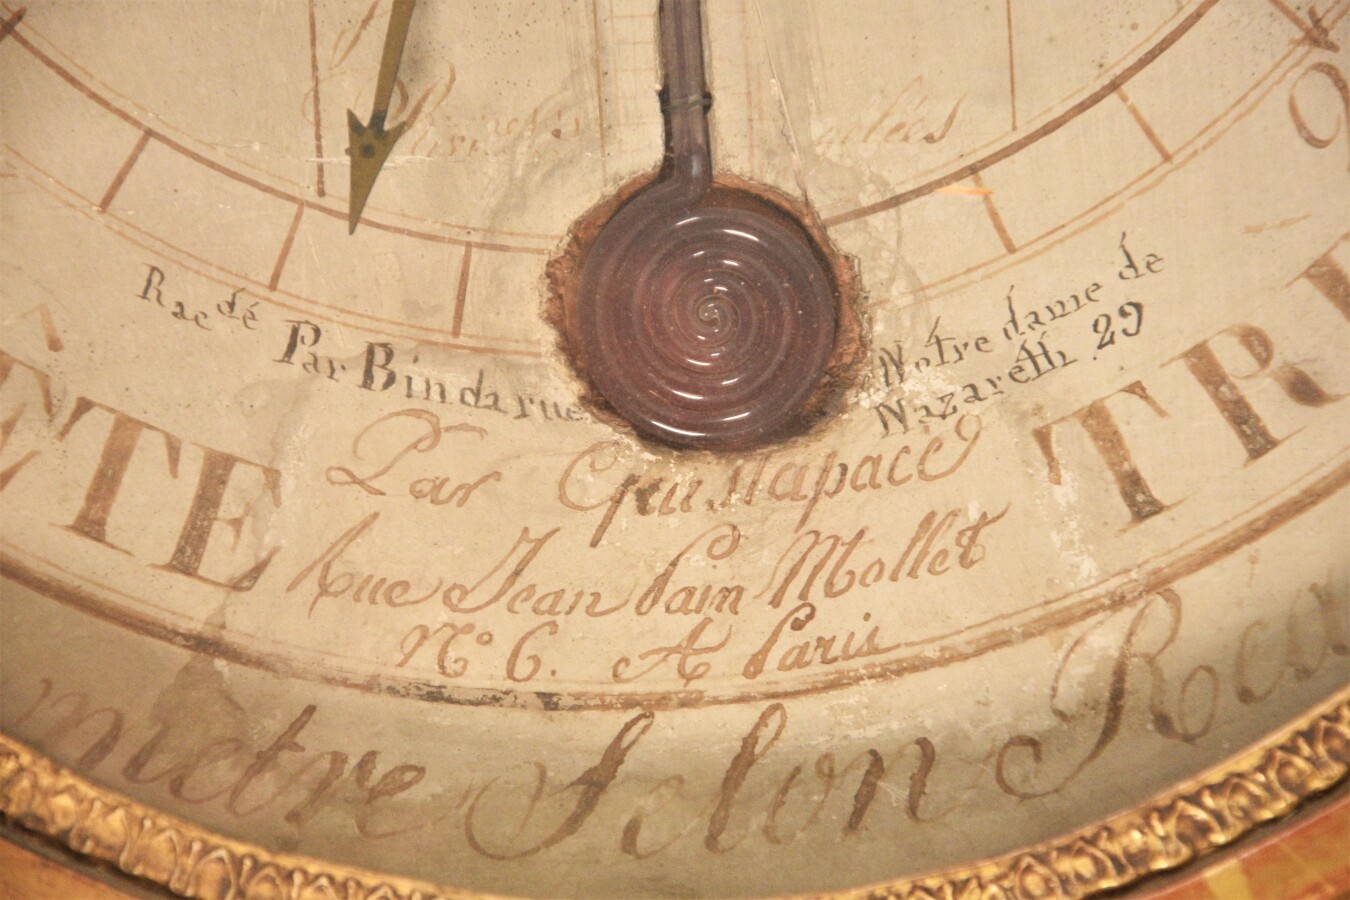 Racdé Par Binda rue Notre dame de
Nazaréth 29
ÈTE TR
Par Gustapace
Rue Jean Pain Mollet
N° 6. A Paris
mètre Selon Rea